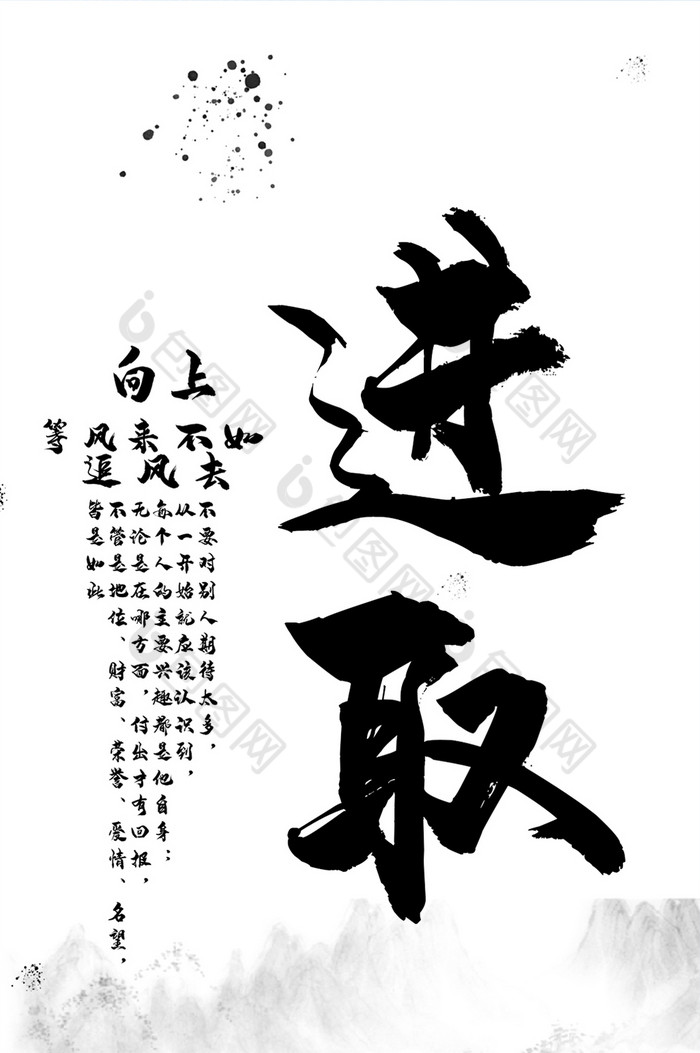 进取
向上
等风来不如
追风去
不要对别人期待太多，
从一开始就应该认识到，
每个人的主要兴趣都是他自身；
无论是在哪方面，付出才有回报，
不管是地位、财富、荣誉、爱情、名望，
皆是如此
包图网
包图网
包图网
包图网
包图网
包图网